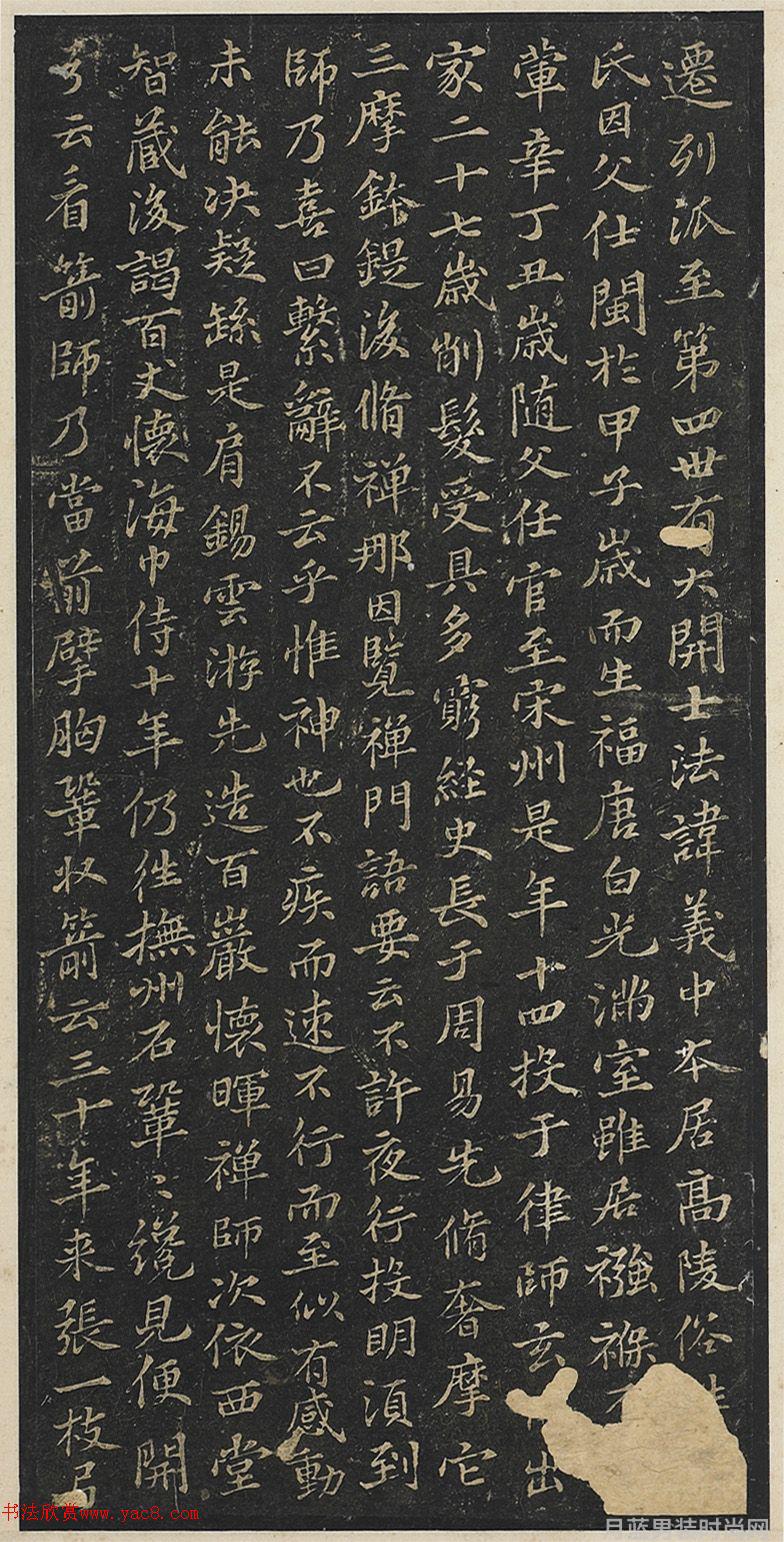 遷列派至第四世有大開士法諱義中本居高陵俗
氏因父仕閩於甲子歲而生福唐白光滿室雖居襁褓
葷辛丁丑歲随父任官至宋州是年十四投于律師玄出
家二十七歲削髮受具多窮經史長于周易先脩奢摩它
三摩鉢鍉後脩禅那因覽禅門語要云不許夜行投明湏到
師乃喜曰繫辭不云乎惟神也不疾而速不行而至似有感動
未能决疑繇是肩錫雲游先造百巖懷暉禅師次依西堂
智蔵後謁百丈懷海巾侍十年仍徃撫州石鞏〻纔見便開
弓云看箭師乃當前擘胸鞏收箭云三十年来張一枝弓
书法欣赏www.yac8.com